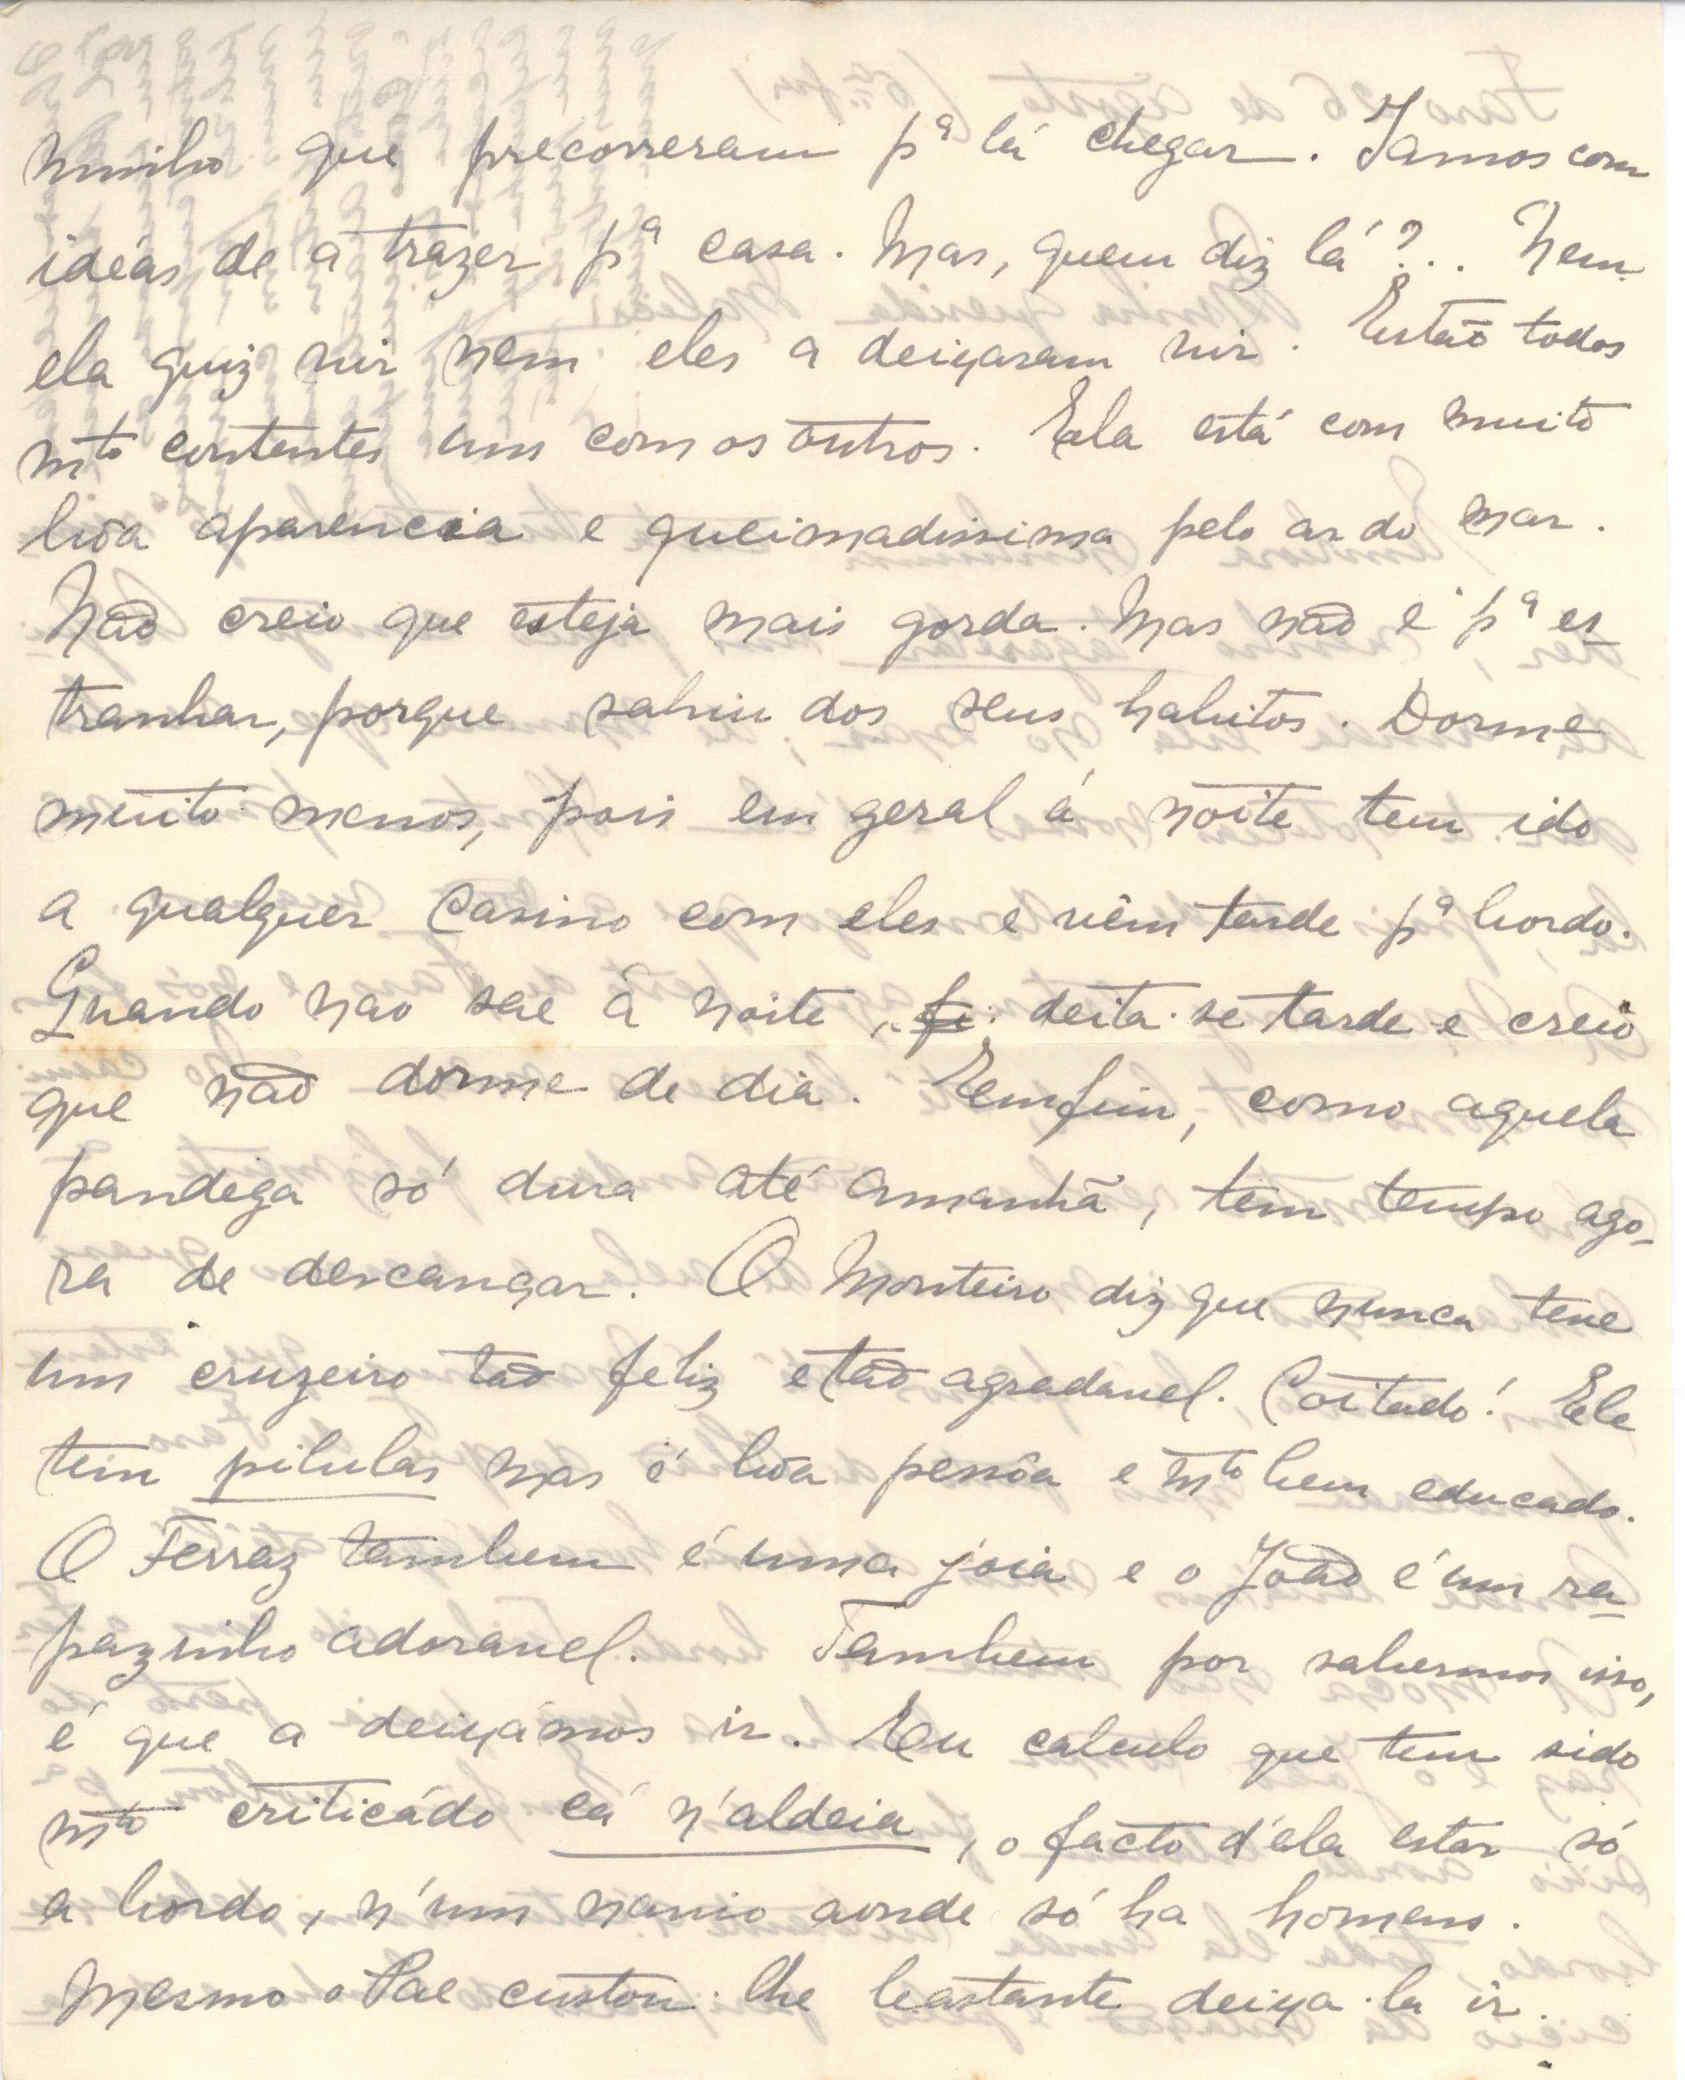 minho que precorreram pª lá chegar. Iamos com
idéas de a trazer pª casa. Mas, quem diz lá?.. Nem
ela quiz vir nem eles a deixaram vir. Estão todos
mto contentes uns com os outros. Ela está com muito
bôa aparencia e queimadissima pelo ar do mar.
Não creio que esteja mais gorda. Mas não é pª es-
tranhar, porque sahiu dos seus habitos. Dorme
muito menos, pois em geral á noite tem ido
a qualquer Casino com eles e vêm tarde pª bordo.
Quando não sae á noite, deita-se tarde e creio
que não dorme de dia. Emfim, como aquela
pandega só dura até amanhã, tem tempo ago-
ra de descançar. O Monteiro diz que nunca teve
um cruzeiro tão feliz e tão agradavel. Coitado! Ele
tem pilulas mas é bôa pessôa e mto bem educado.
O Ferraz tambem é uma joia e o João é um ra-
pazinho adoravel. Tambem por sabermos isso,
é que a deixámos ir. Eu calculo que tem sido
mto criticádo cá n'aldeia, o facto d'ela estar só
a bordo, n'um navio aonde só ha homens.
Mesmo o Pae custou-lhe bastante deixa-la ir.